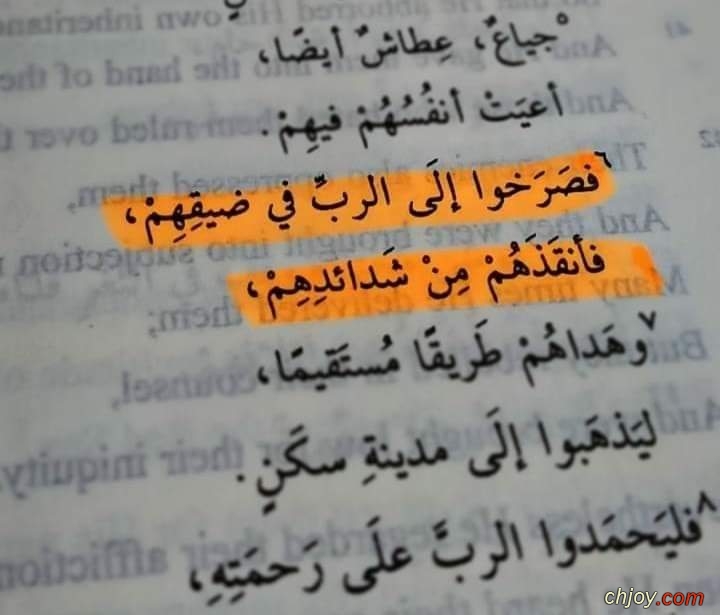 ٥جياعٌ، عِطاشٌ أيضًا،
أعيَتْ أنفُسُهُمْ فيهِمْ.
٦فصَرَخوا إلَى الربِّ في ضيقِهِمْ،
فأنقَذَهُمْ مِنْ شَدائدِهِمْ،
٧وهَداهُمْ طَريقًا مُستَقيمًا،
ليَذهَبوا إلَى مدينةِ سكَنٍ.
٨فليَحمَدوا الربَّ علَى رَحمَتِهِ،
chjoy.com